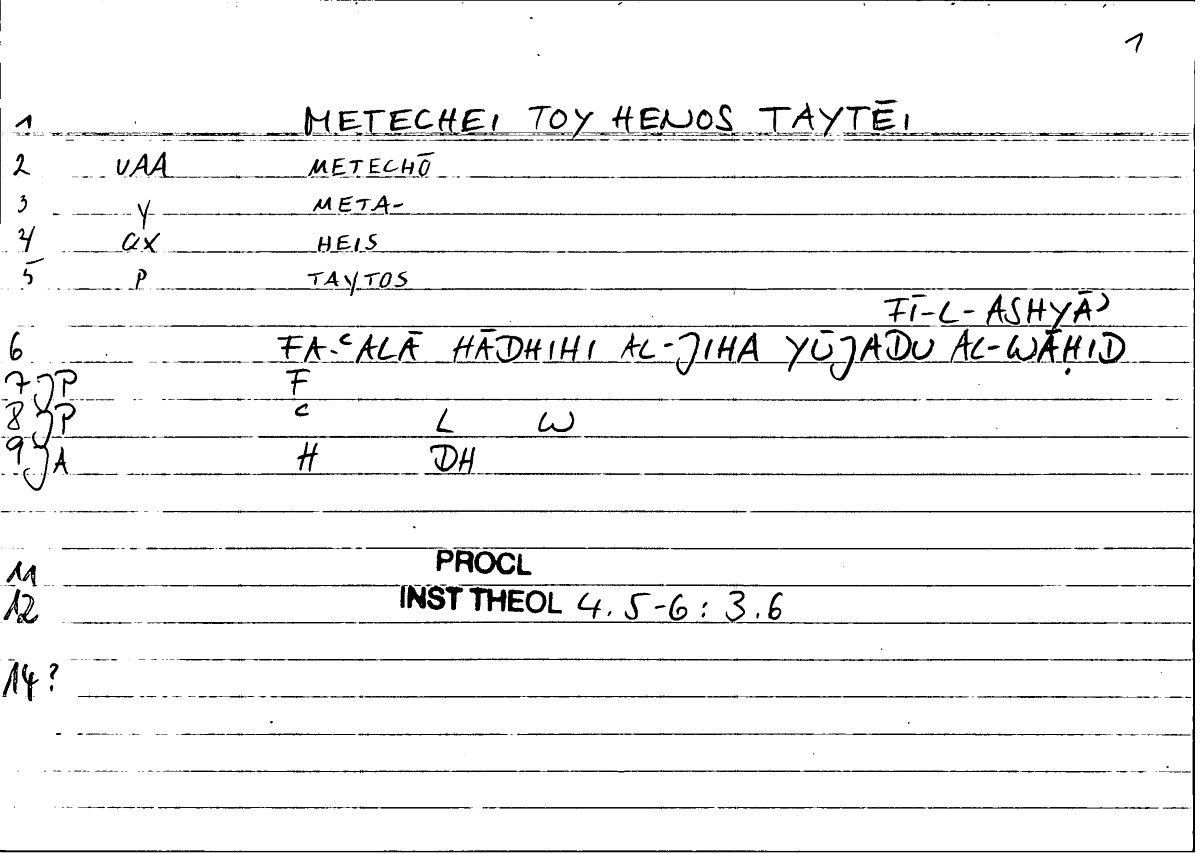 1
1 METECHEI TOY HENOS TAYTĒI
2 VAA METECHŌ
3 Y META-
4 CIX HEIS
5 P TAYTOS
FĪ-L-ASHYĀʾ
6 FA-ʿALĀ HĀDHIHI AL-JIHA YŪJADU AL-WĀḤID
7 JP F
8 JP ʿ L W
9 JA H DH
11 PROCL
12 INST THEOL 4.5-6: 3.6
14?